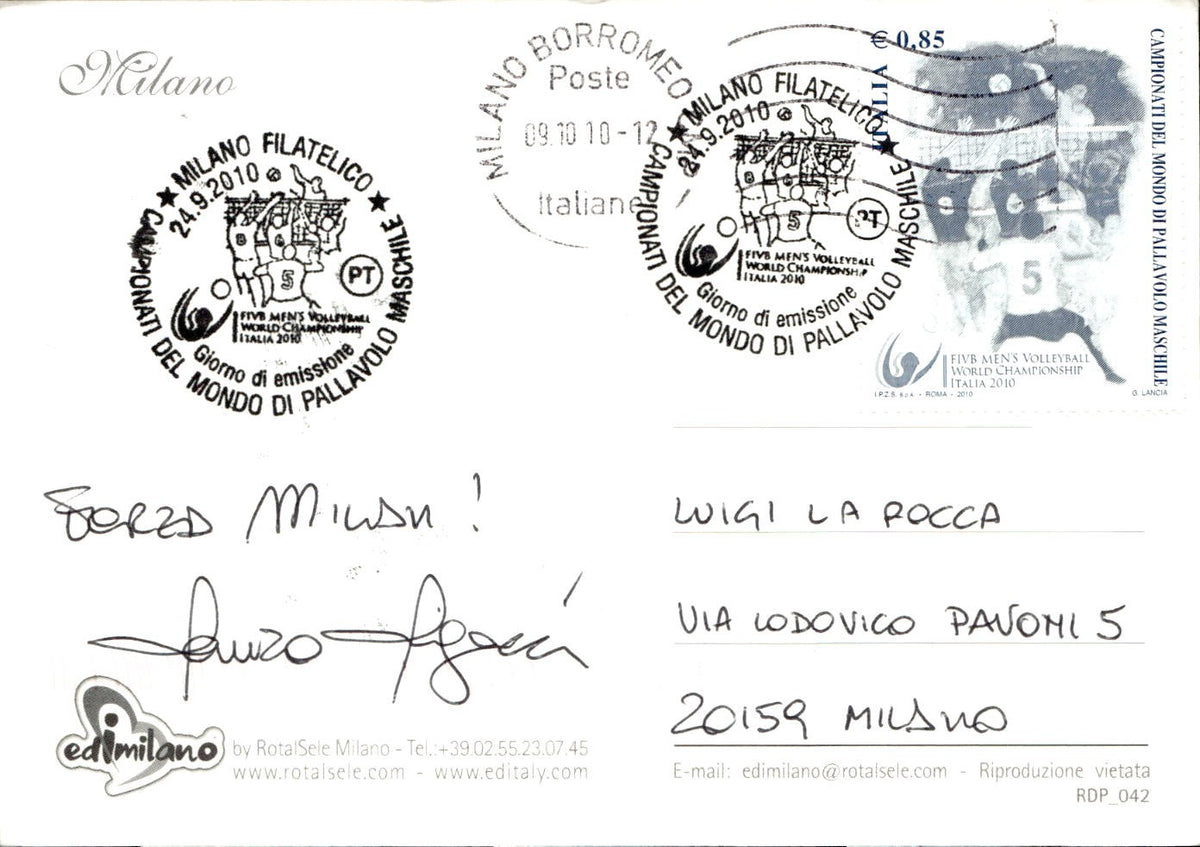 Milano
MILANO FILATELICO
24.9.2010
5
PT
FIVB MEN'S VOLLEYBALL
WORLD CHAMPIONSHIP
ITALIA 2010
Giorno di emissione
CAMPIONATI DEL MONDO DI PALLAVOLO MASCHILE
MILANO BORROMEO
Poste
09.10 10-12
Italiane
MILANO FILATELICO
24.9.2010
5
PT
FIVB MEN'S VOLLEYBALL
WORLD CHAMPIONSHIP
ITALIA 2010
Giorno di emissione
CAMPIONATI DEL MONDO DI PALLAVOLO MASCHILE
€ 0,85
ITALIA
CAMPIONATI DEL MONDO DI PALLAVOLO MASCHILE
5
FIVB MEN'S VOLLEYBALL
WORLD CHAMPIONSHIP
ITALIA 2010
I.P.Z.S. S.p.A. - ROMA - 2010
G. LANCIA
FORZA MILAN!
LUIGI LA ROCCA
VIA LODOVICO PAVONI 5
20159 MILANO
edimilano
by RotalSele Milano - Tel.:+39.02.55.23.07.45
www.rotalsele.com - www.editaly.com
E-mail: edimilano@rotalsele.com - Riproduzione vietata
RDP_042